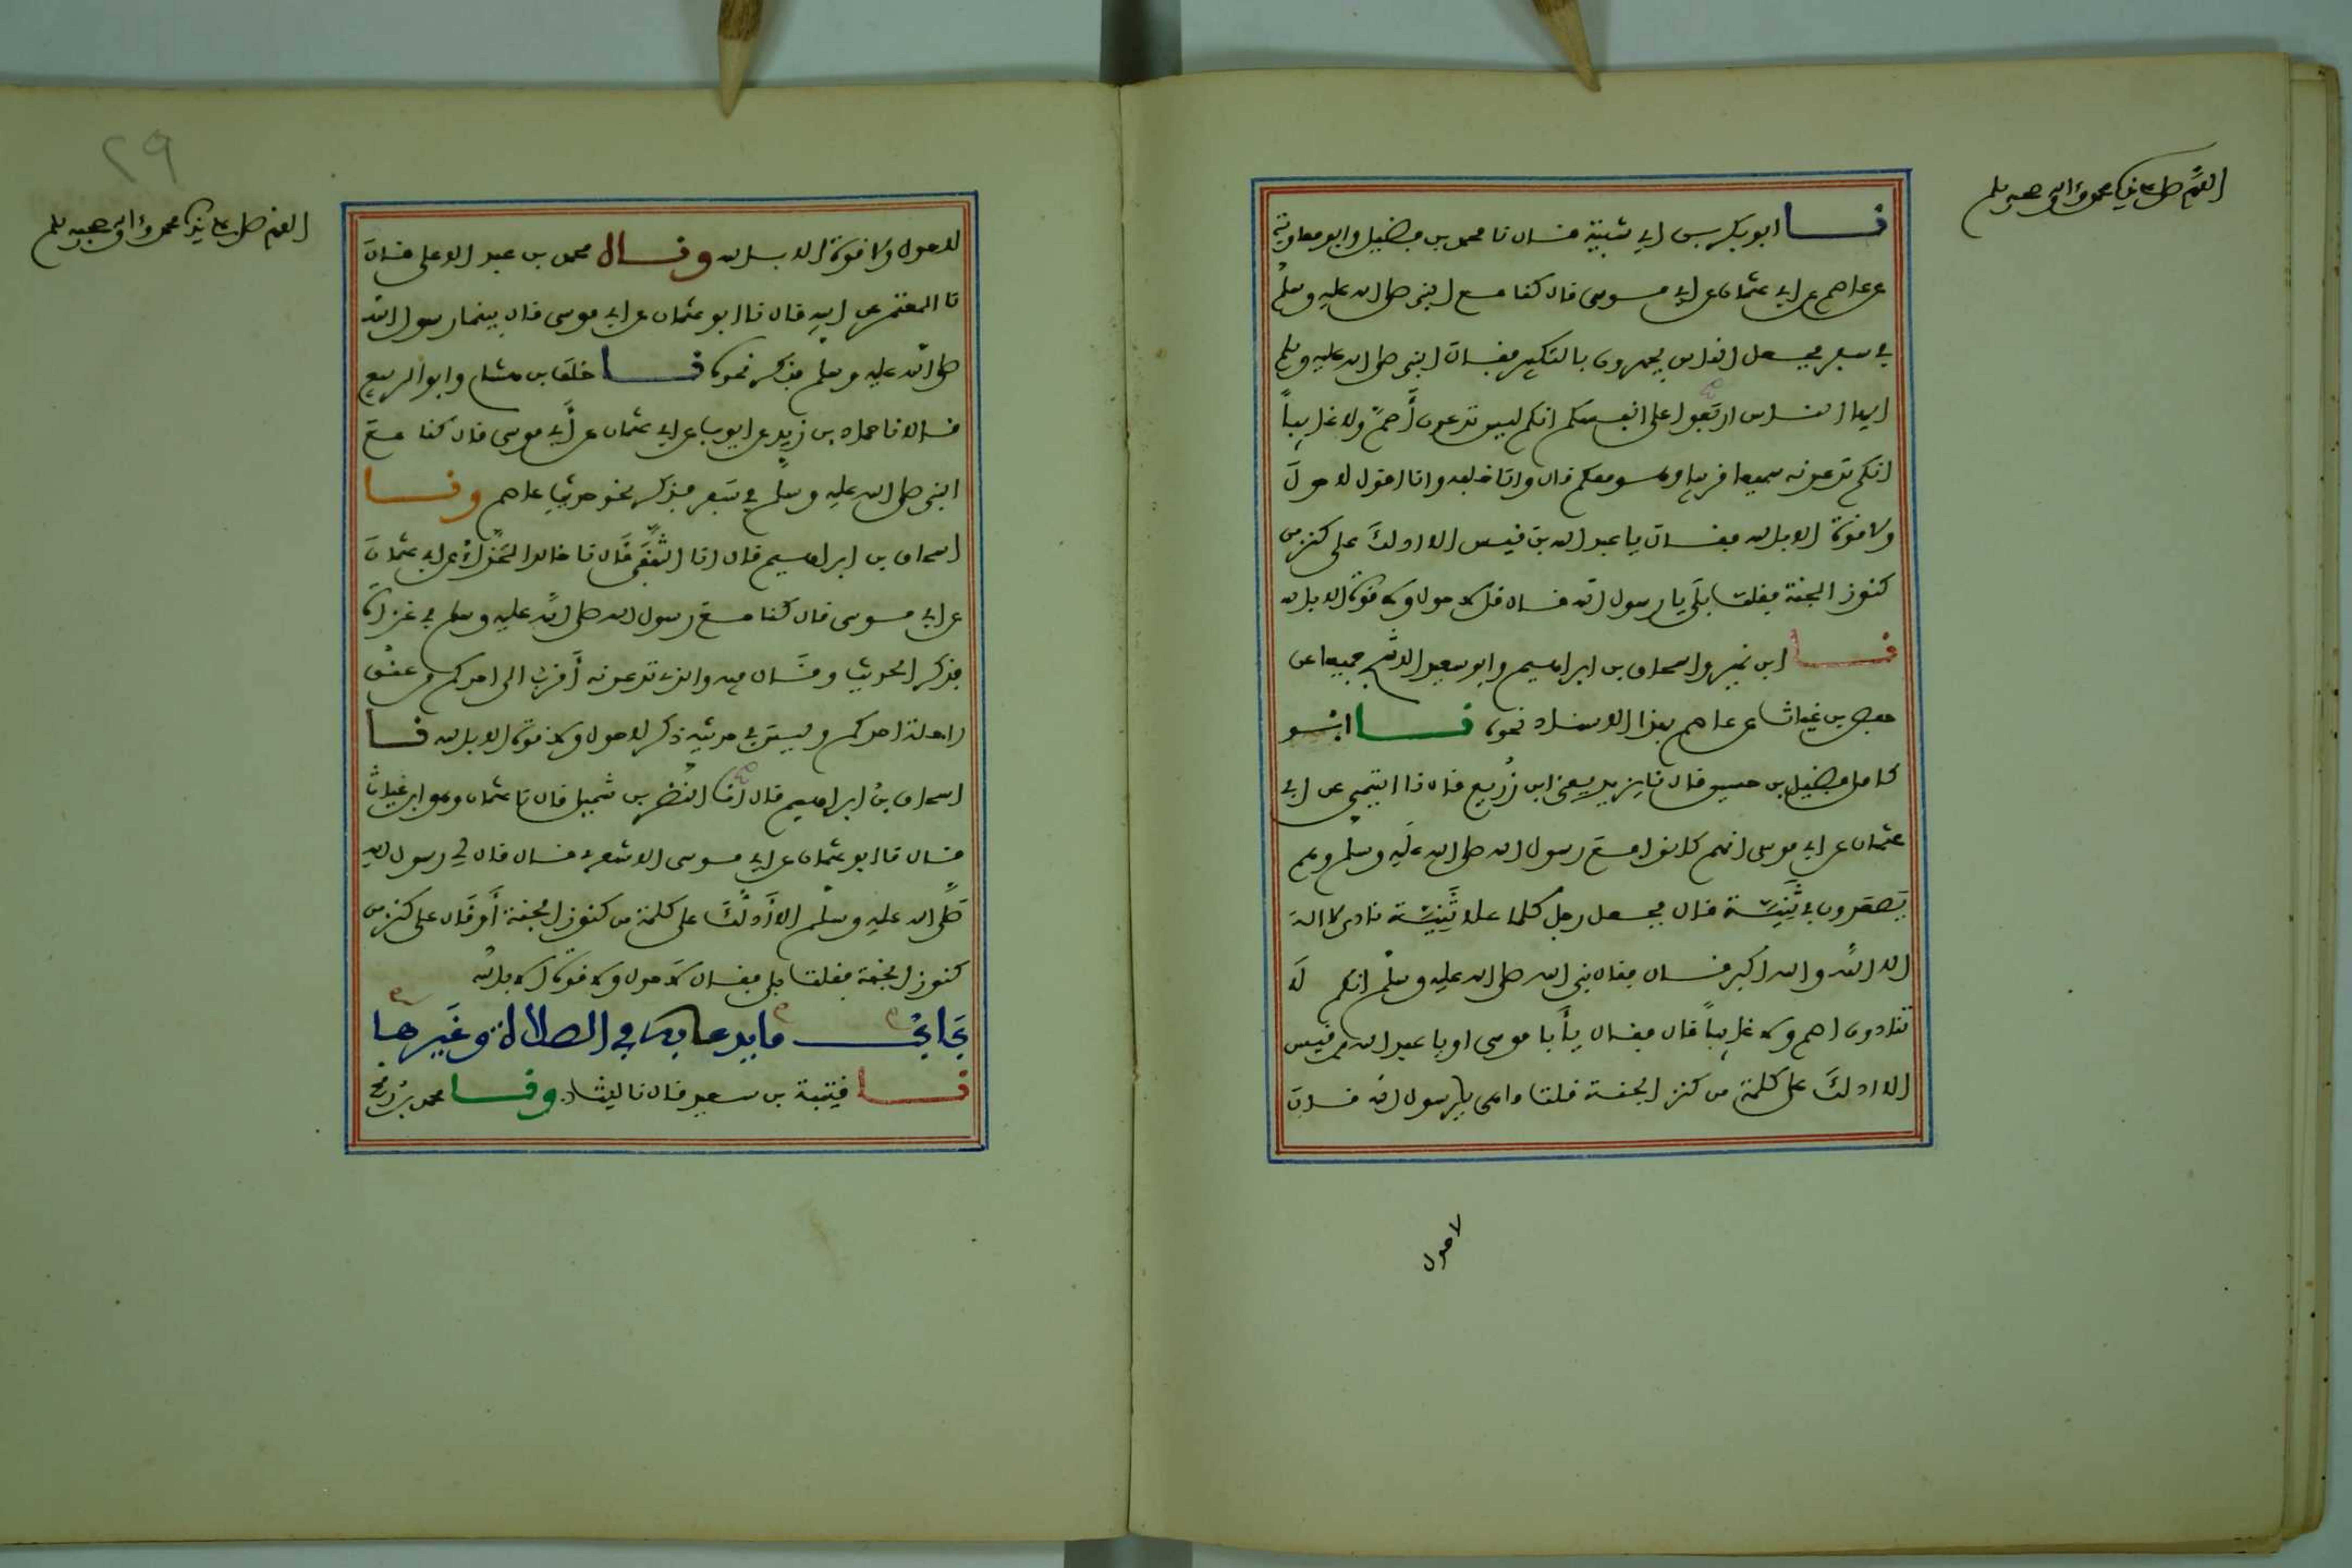 اللهم صل على نبينا محمد وآله وصحبه وسلم
نا ابو بكر بن ابي شيبة قال نا محمد بن فضيل وابو معاوية
عن عاصم عن ابي عثمان عن ابي موسى قال كنا مع النبي صلى الله عليه وسلم
في سفر فجعل الناس يجهرون بالتكبير فقال النبي صلى الله عليه وسلم
ايها الناس اربعوا على انفسكم انكم ليس تدعون أصم ولا غايباً
انكم تدعونه سميعا قريبا وهو معكم قال وانا خلفه وانا اقول لا حول
ولا قوة الا بالله فقال يا عبد الله بن قيس الا ادلك على كنز من
كنوز الجنة فقلت بلى يا رسول الله قال قل لا حول ولا قوة الا بالله
نا ابن نمير واسحاق بن ابراهيم وابو سعيد الاشج جميعا عن
حفص بن غياث عن عاصم بهذا الاسناد نحوه نا ابو
كامل فضيل بن حسين قال نا يزيد يعني ابن زُريع قال نا التيمي عن ابي
عثمان عن ابي موسى انهم كانوا مع رسول الله صلى الله عليه وسلم وهم
يصعدون في ثَنِيَّة قال فجعل رجل كلما علا ثَنِيَّة نادى لا اله
الا الله والله اكبر قال فقال نبي الله صلى الله عليه وسلم انكم لا
تنادون اصم ولا غايباً قال فقال يأبا موسى او يا عبد الله بن قيس
الا ادلك على كلمة من كنز الجنة قلت ما هي يا رسول الله قال
لا حول
٢٩
اللهم صل على نبينا محمد وآله وصحبه وسلم
لا حول ولا قوة الا بالله ونا محمد بن عبد الاعلى قال
نا المعتمر عن ابيه قال نا ابو عثمان عن ابي موسى قال بينما رسول الله
صلى الله عليه وسلم فذكر نحوه نا خلف بن هشام وابو الربيع
قالا نا حماد بن زيد عن ايوب عن ابي عثمان عن أبي موسى قال كنا مع
النبي صلى الله عليه وسلم في سفر فذكر نحو حديث عاصم ونا
اسحاق بن ابراهيم قال انا الثقفي قال نا خالد الحذاء عن ابي عثمان
عن ابي موسى قال كنا مع رسول الله صلى الله عليه وسلم في غزاة
فذكر الحديث وقال فيه والذي تدعونه أقرب الى احدكم من عنق
راحلة احدكم وليس في حديثه ذكر لا حول ولا قوة الا بالله نا
اسحاق بن ابراهيم قال انا النضر بن شميل قال نا عثمان وهو ابن غياث
قال نا ابو عثمان عن ابي موسى الاشعري قال قال لي رسول الله
صلى الله عليه وسلم الا أدلك على كلمة من كنوز الجنة أو قال على كنز من
كنوز الجنة فقلت بلى فقال لا حول ولا قوة الا بالله
باب ما يدعا به في الصلاة وغيرها
نا قتيبة بن سعيد قال نا ليث ونا محمد بن رمح